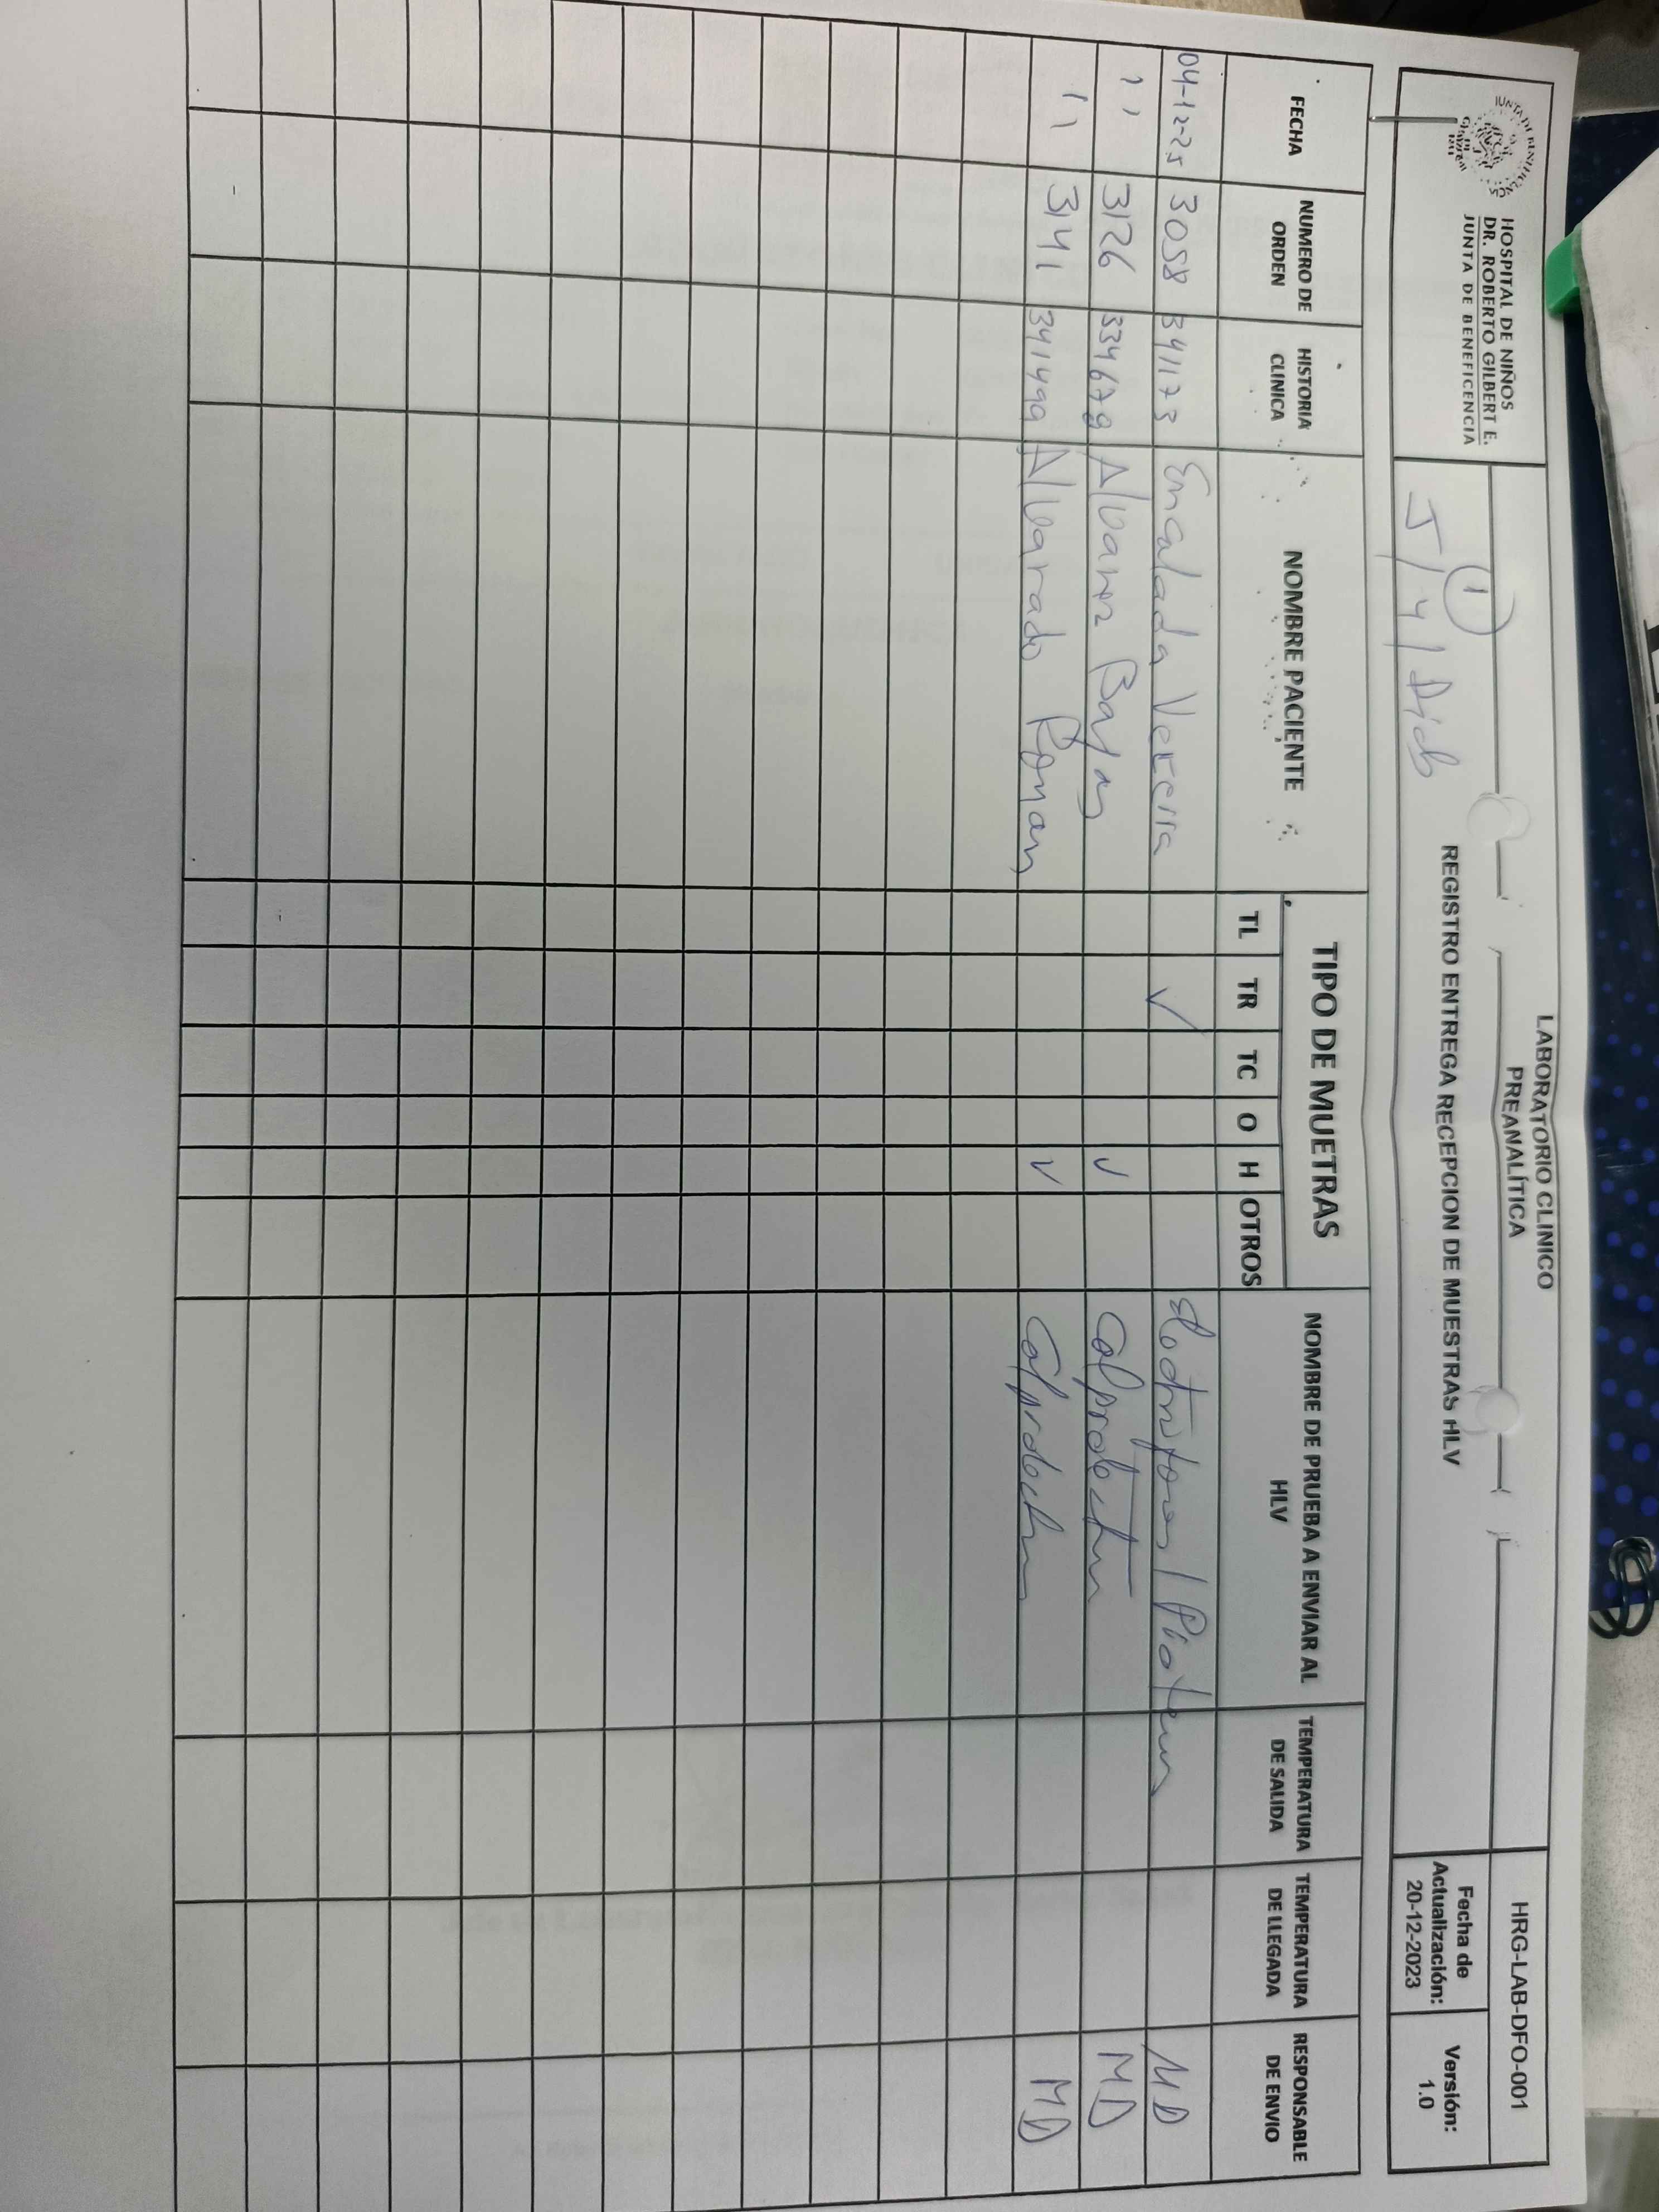 HOSPITAL DE NIÑOS
DR. ROBERTO GILBERT E.
JUNTA DE BENEFICENCIA
LABORATORIO CLINICO
PREANALÍTICA
HRG-LAB-DFO-001
1
J/4/Dicb
REGISTRO ENTREGA RECEPCION DE MUESTRAS HLV
Fecha de
Actualización:
20-12-2023
Versión:
1.0
FECHA NUMERO DE ORDEN HISTORIA CLINICA NOMBRE PACIENTE TIPO DE MUETRAS NOMBRE DE PRUEBA A ENVIAR AL HLV TEMPERATURA DE SALIDA TEMPERATURA DE LLEGADA RESPONSABLE DE ENVIO
TL TR TC O H OTROS
04-12-25 3058 341173 Encalada ✓ MD
'' 3126 Alvarez ✓ Calprotectin MD
'' 3141 341499 Alvarado Roman ✓ Calprotectin MD